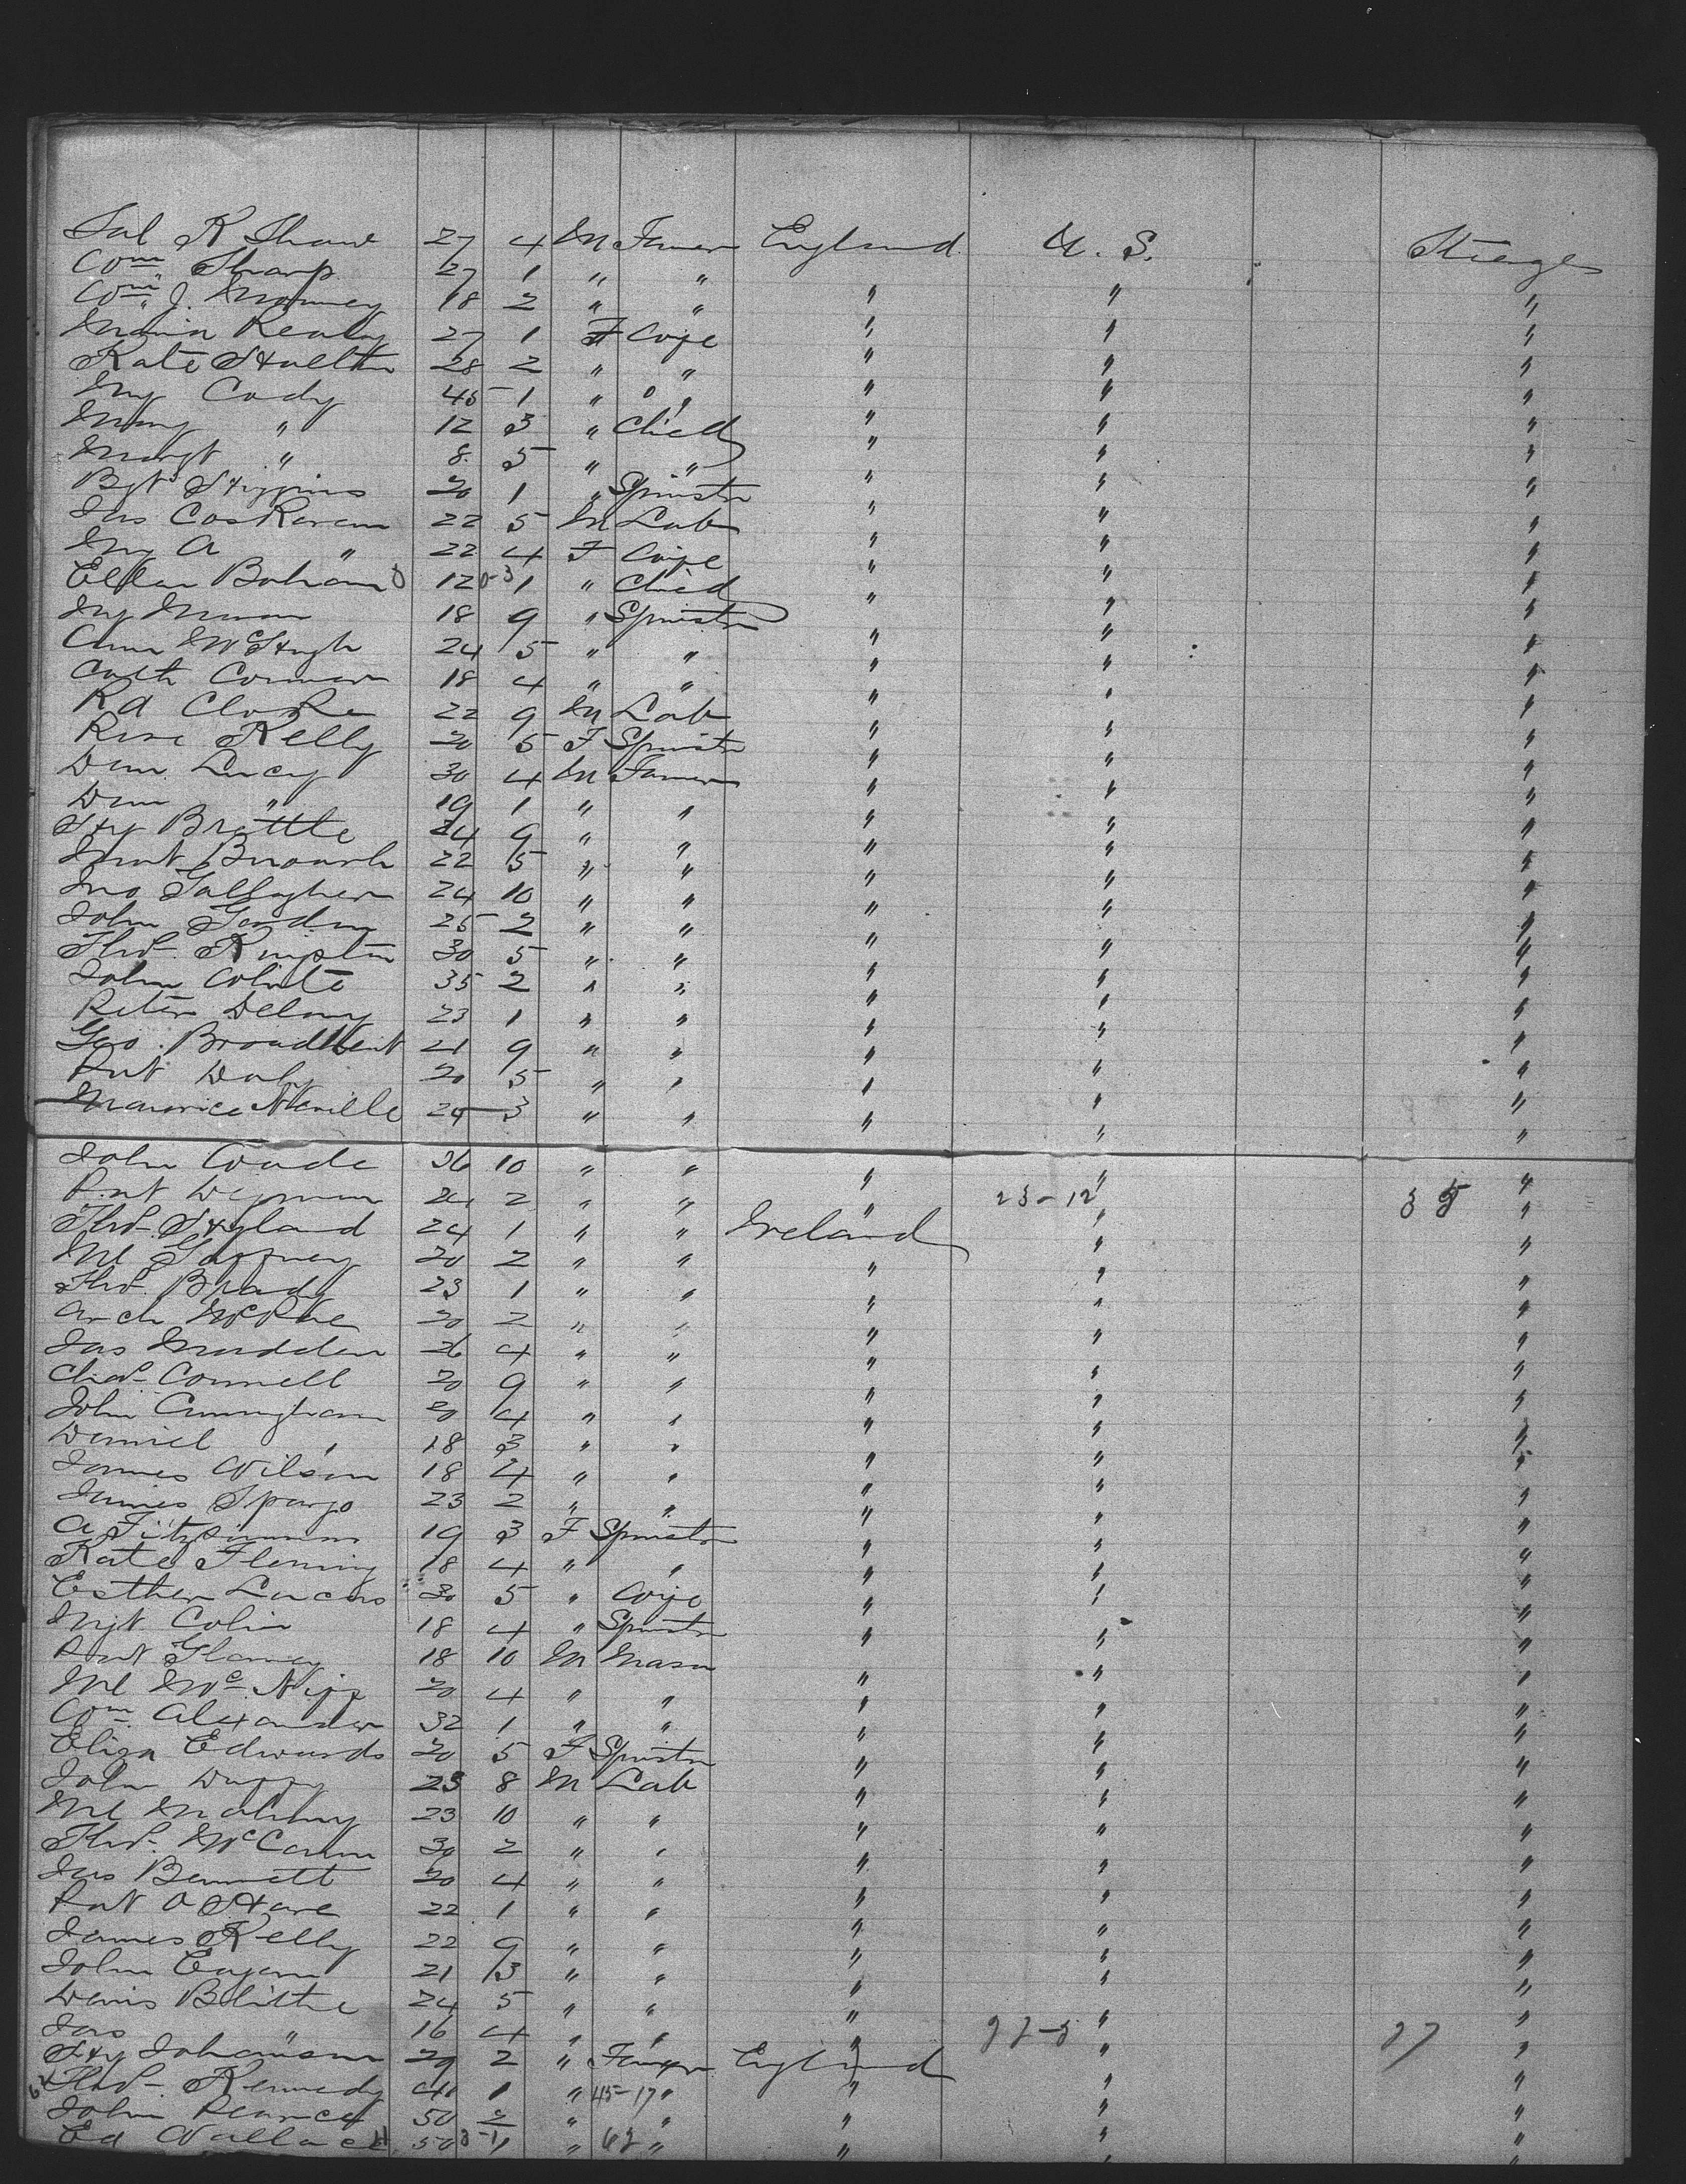 Sal K Shaw 27 4 M Farmer England U. S. Steerage
Wm Sharp 27 1 " " " " "
Wm J. Mooney 18 2 " " " " "
Maria Realy 27 1 F Wife " " "
Kate Hulltn 28 2 " " " " "
My Cody 45 1 " " " " "
Mary " 12 3 " Child " " "
Margt " 8 5 " " " " "
Bgt Higgins 20 1 " Spinstr " " "
Jas CosKeran 22 5 M Lab " " "
My A " 22 4 F Wife " " "
Ellen Bohan 12 1 " Child " " "
My 18 9 " Spinstr " " "
Ann McHugh 24 5 " " " " "
Cath Connor 18 4 " " " " "
Rd Clarke 22 9 M Lab " " "
Rose Kelly 20 5 F Spinstr " " "
Danl Lucy 30 4 M Farmer " " "
" 19 1 " " " " "
Hy Brattle 24 9 " " " " "
22 5 " " " " "
Jno Gallagher 24 10 " " " " "
John Gordon 25 2 " " " " "
Thos. Kimptn 30 5 " " " " "
John White 35 2 " " " " "
Peter Delany 23 1 " " " " "
Geo. Broadbent 21 9 " " " " "
Pat Daly 20 5 " " " " "
Maurice Neville 24 3 " " " " "
John Wade 36 10 " " " " "
Pat 24 2 " " " 23-12 " 35 "
Thos Hyland 24 1 " " Ireland " "
Ml Gaffney 20 2 " " " " "
Thos. Brady 23 1 " " " " "
Arch McRae 20 2 " " " " "
Jas Madden 26 4 " " " " "
Chas Connell 20 9 " " " " "
John Cunningham 20 4 " " " " "
Daniel " 18 3 " " " " "
James Wilson 18 4 " " " " "
James Spargo 23 2 " " " " "
A Fitzsimmons 19 3 F Spinstr " " "
Kate Fleming 18 4 " " " " "
Esther Lucas 30 5 " Wife " " "
Mgt. Colin 18 4 " Spinstr " " "
Pat 18 10 M Mason " " "
Ml 20 4 " " " " "
Wm Alexander 32 1 " " " " "
Eliza Edwards 20 5 F Spinstr " " "
John Duffy 25 8 M Lab " " "
Ml Mahony 23 10 " " " " "
Thos McCann 30 2 " " " " "
Jas Bennett 20 4 " " " " "
Pat O Hare 22 1 " " " " "
James Kelly 22 9 " " " " "
John Eagan 21 3 " " " " "
Denis Blithe 24 5 " " " " "
Jas " 16 4 " " " "
Hy Johnson 29 2 " Farmer England " "
Thos Kennedy 41 1 " 45-17 " " " "
John Pearce 50 2 " " " " "
Ed Wallace 50 1 " 62 " " " "